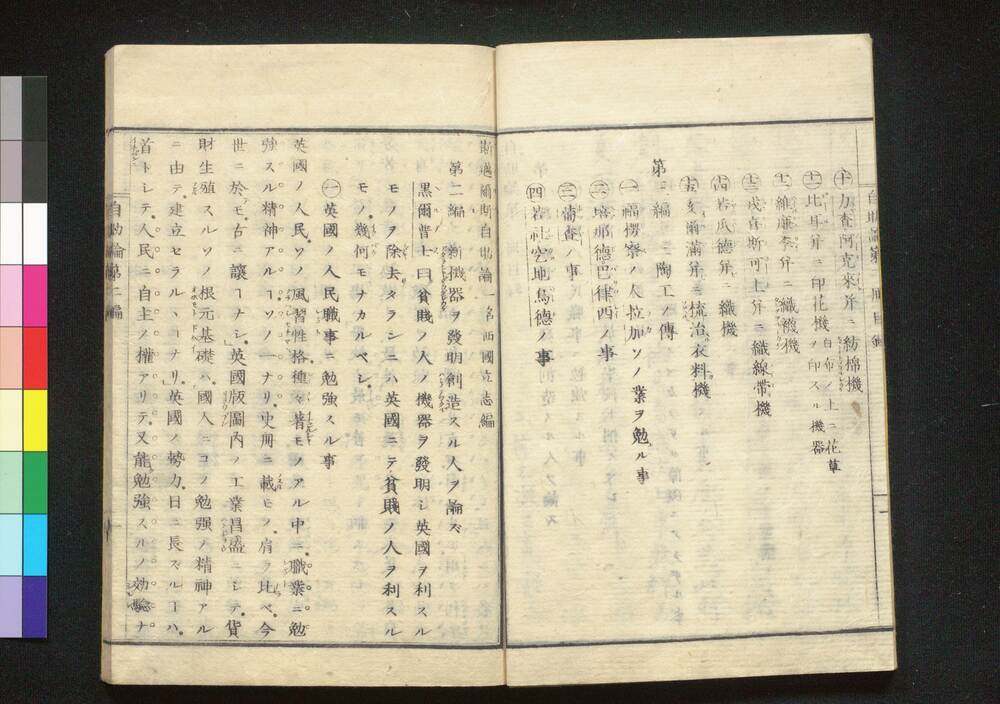 自助論第一冊目録
十 力査阿克來弁ニ紡棉機
十一 比耳弁ニ印花機 白布ノ上ニ花草ヲ印スル機器
十二 維廉李弁ニ織襪機
十三 弁ニ織線帶機
十四 若瓜德弁ニ織機
十五 弁ニ梳治衣料機
第三編 陶工ノ傳
一 福楞察ノ人拉加ソノ業ヲ勉ル事
二 培那德巴律西ノ事
三 ノ事
四 若社空地烏德ノ事
斯邁爾斯自助論 一名西國立志編
第二編 新機器ヲ發明創造スル人ヲ論ズ
黒爾普士曰貧賤ノ人ノ機器ヲ發明シ英國ヲ利スル
モノヲ除去タランニハ英國ニテ貧賤ノ人ヲ利スル
モノ幾何モナカルベシ
一 英國ノ人民職事ニ勉強スル事
英國ノ人民ソノ風習性格種々著モノアル中ニ職業ニ勉
強スル精神アルヿソノ一ナリ史冊ニ載モノ肩ヲ比ベ今
世ニ於モ古ニ讓ヿナシ英國版圖内ノ工業昌盛ニシテ貨
財生殖スルソノ根元基礎ハ國人ニコノ勉強ノ精神アル
ニ由テ建立セラルヽコナリ英國ノ勢力日ニ長ズルヿハ
首トシテ人民ニ自主ノ權アリテ又能勉強スルノ効驗ナ
自助論第二編
一